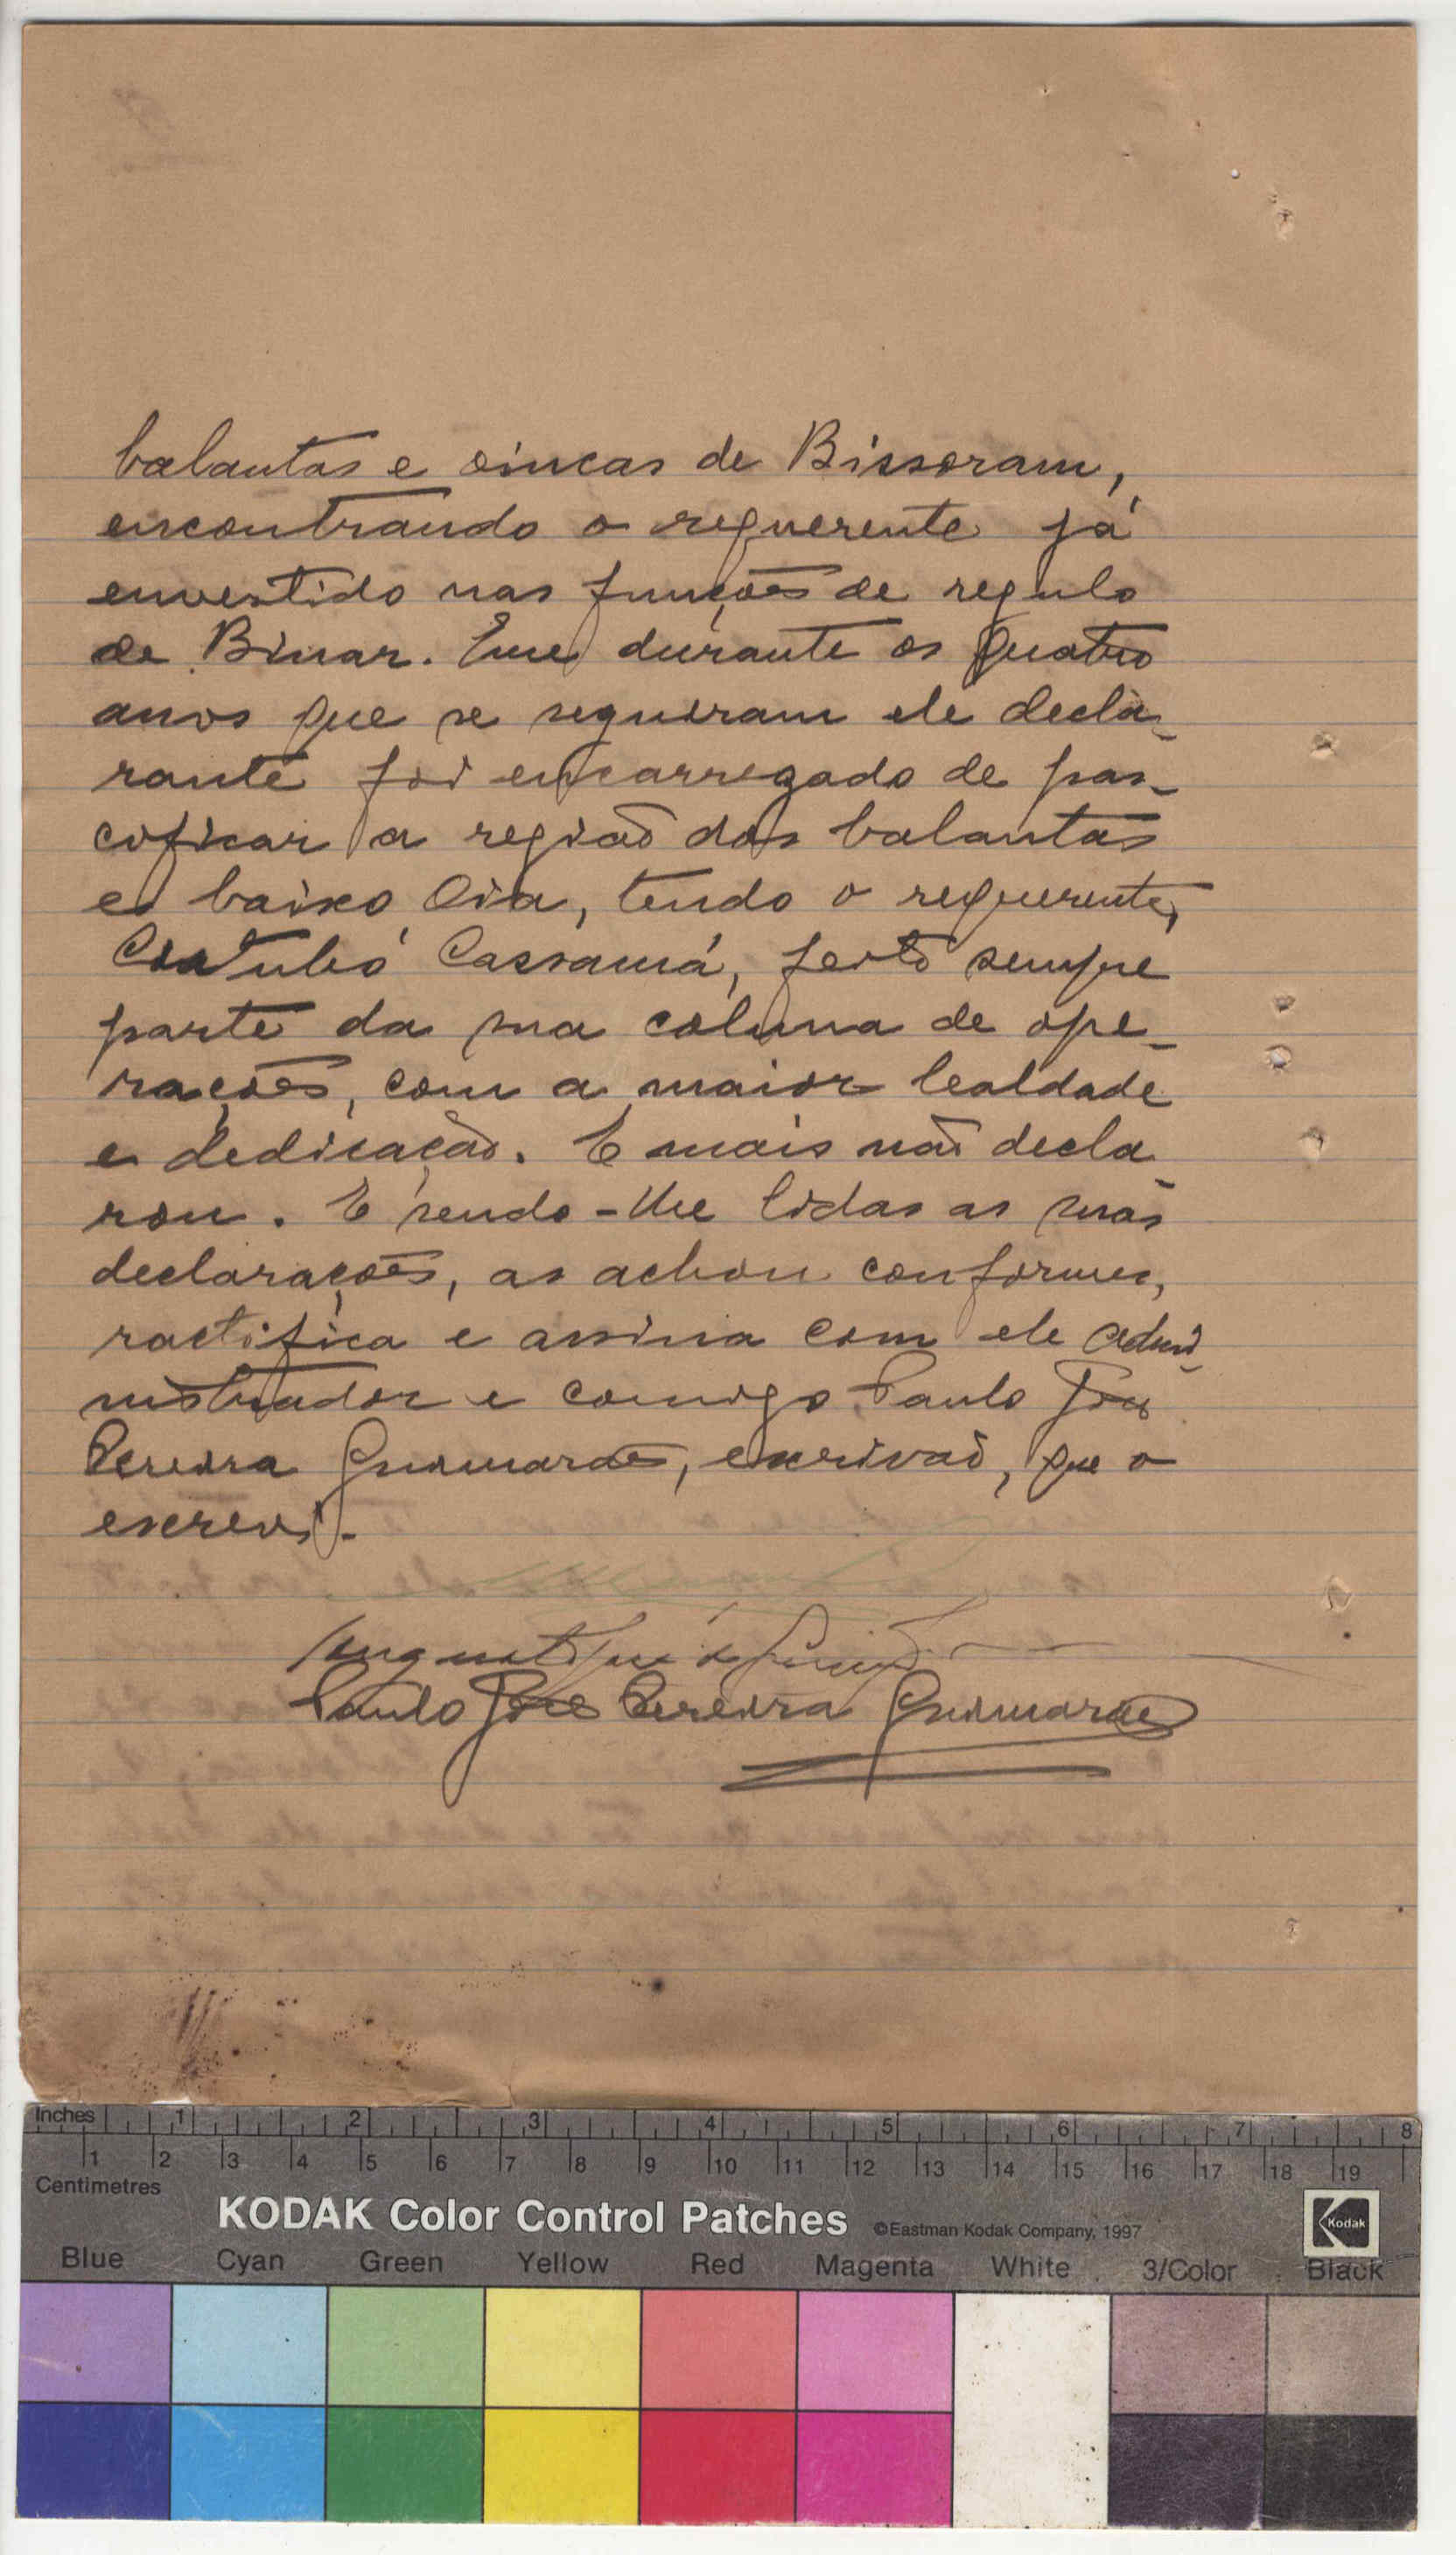 balantas e oincas de Bissoram,
encontrando o requerente já
envestido nas funções de regulo
de Binar. Que durante os quatro
anos que se seguiram ele decla-
rante foi encarregado de pas-
coficar a região dos balantas
e baixo Oia, tendo o requerente,
Cassamá, feito sempre
parte da sua coluna de ope-
rações, com a maior lealdade
e dedicação. E mais não decla-
rou. E sendo-lhe lidas as suas
declarações, as achou conformes,
ractifica e assina com ele admi-
nistrador e comigo Paulo José
Pereira Guimarães, escrivão, que o
escrevi.
Paulo José Pereira Guimarães
Inches 1 2 3 4 5 6 7 8
1 2 3 4 5 6 7 8 9 10 11 12 13 14 15 16 17 18 19
Centimetres
KODAK Color Control Patches ©Eastman Kodak Company, 1997 Kodak
Blue Cyan Green Yellow Red Magenta White 3/Color Black